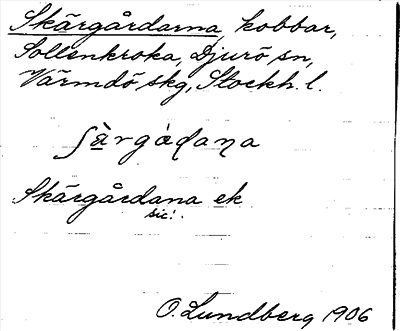 Skärgårdarna, kobbar,
Sollenkroka, Djurö sn,
Värmdö skg, Stockh. l.
Skärgårdana ek
sic!
O. Lundberg 1906